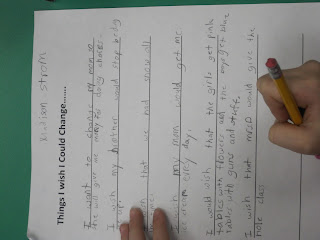 Things I wish I Could Change.......
I want to change my mom so
she will give me money for doing chores.
I wish my brother would stop being
I wish that we had snow all
I wish my mom would get me
ice cream every day.
I would wish that the girls get pink
tables with flowers and the boys get blue
tables with guns and stuff.
I wish that would give the
hole class